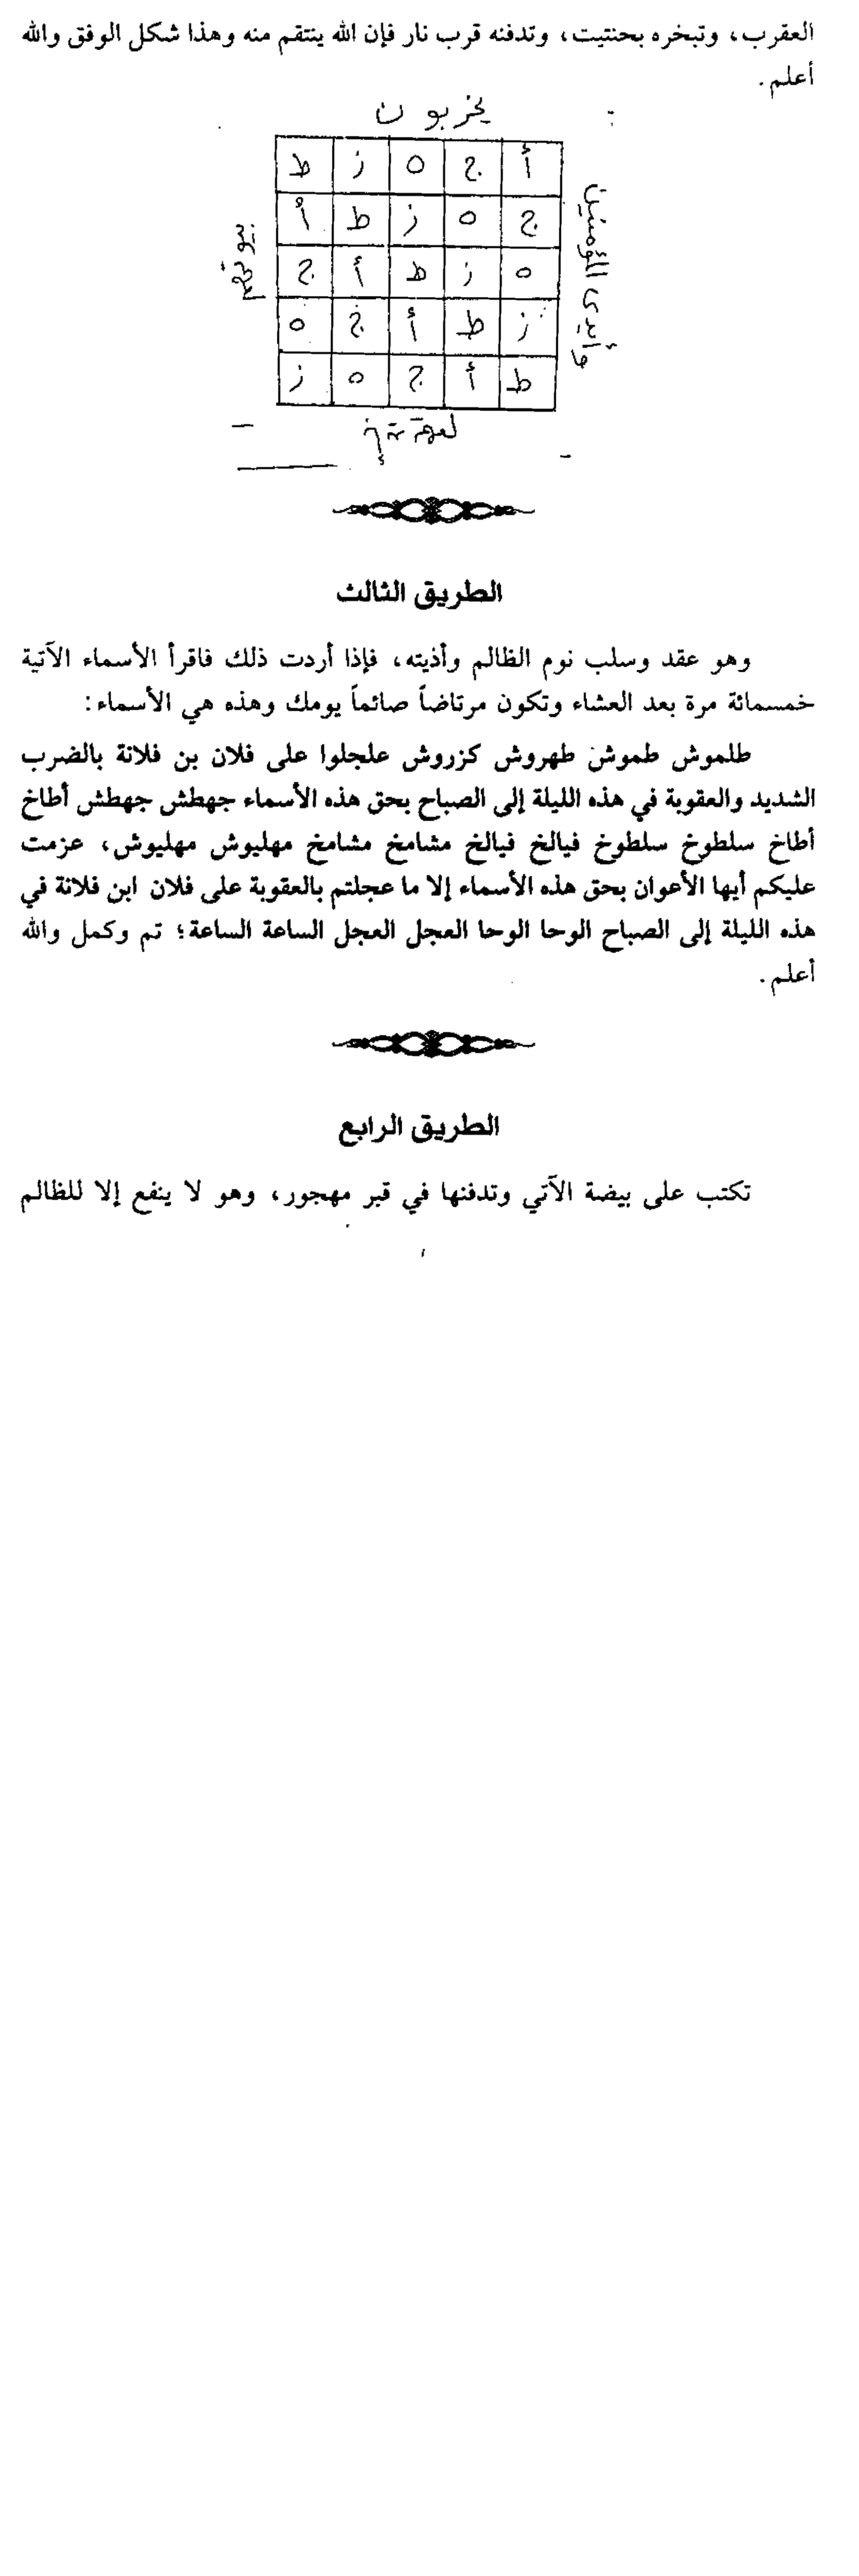 العقرب، وتبخره بحنتيت، وتدفنه قرب نار فإن الله ينتقم منه وهذا شكل الوفق والله
أعلم.
يخربون
أ ج ه ز ط
ج ه ز ط أ
ه ز ط أ ج
ز ط أ ج ه
ط أ ج ه ز
وأيدى المؤمنين
بيوتهم
الطريق الثالث
وهو عقد وسلب نوم الظالم وأذيته، فإذا أردت ذلك فاقرأ الأسماء الآتية
خمسمائة مرة بعد العشاء وتكون مرتاضاً صائماً يومك وهذه هي الأسماء:
طلموش طموش طهروش كزروش علجلوا على فلان بن فلانة بالضرب
الشديد والعقوبة في هذه الليلة إلى الصباح بحق هذه الأسماء جهطش جهطش أطاخ
أطاخ سلطوخ سلطوخ فيالخ فيالخ مشامخ مشامخ مهليوش مهليوش، عزمت
عليكم أيها الأعوان بحق هذه الأسماء إلا ما عجلتم بالعقوبة على فلان ابن فلانة في
هذه الليلة إلى الصباح الوحا الوحا العجل العجل الساعة الساعة؛ تم وكمل والله
أعلم.
الطريق الرابع
تكتب على بيضة الآتي وتدفنها في قبر مهجور، وهو لا ينفع إلا للظالم